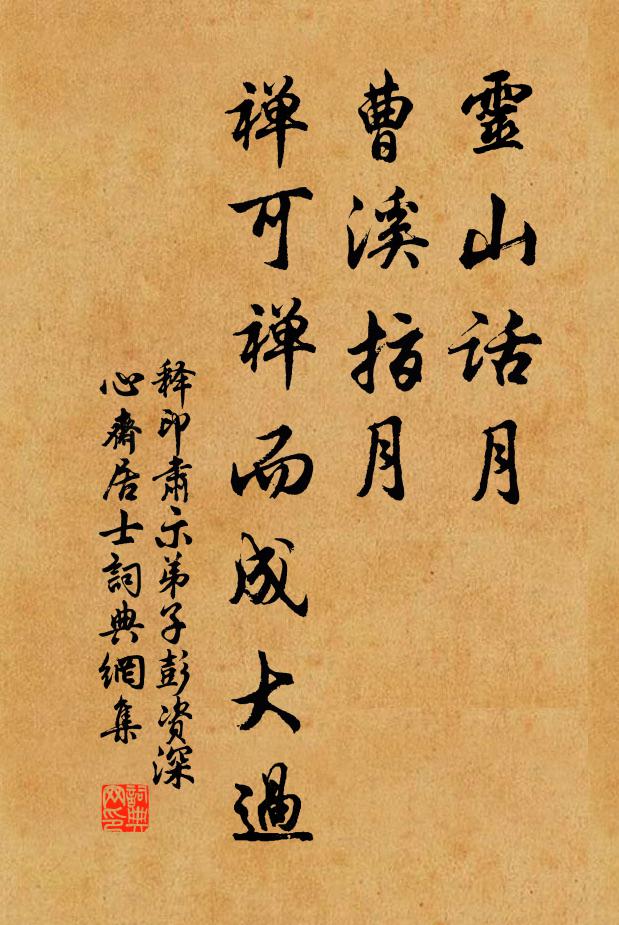 靈山話月
曹溪指月
禅可禅而成大過
释印肅示弟子彭资深
心齋居士詞典網集
詞典网印